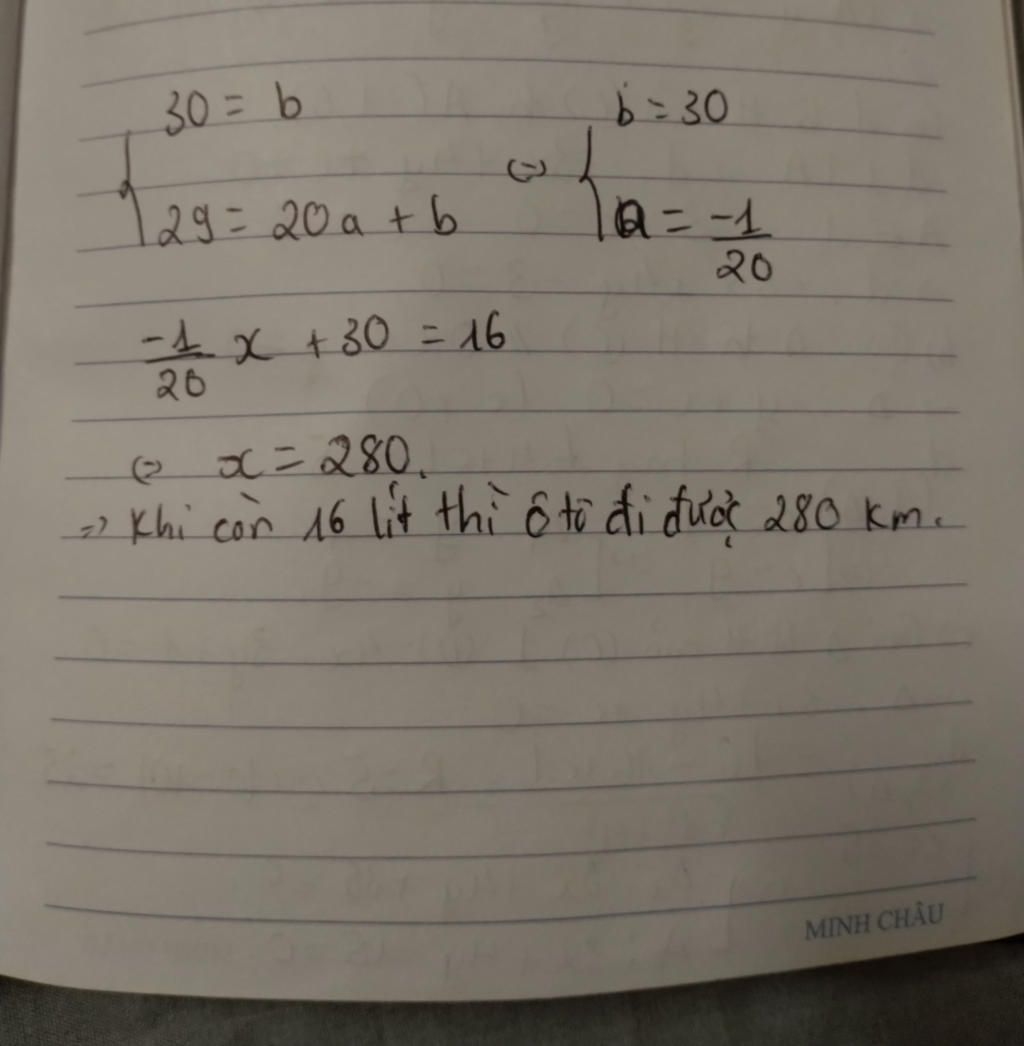 30 = b ⇔ b = 30
29 = 20a + b a = -1/20
-1/20 x + 30 = 16
⇔ x = 280.
=> Khi còn 16 lít thì ô tô đi được 280 km.
MINH CHÂU